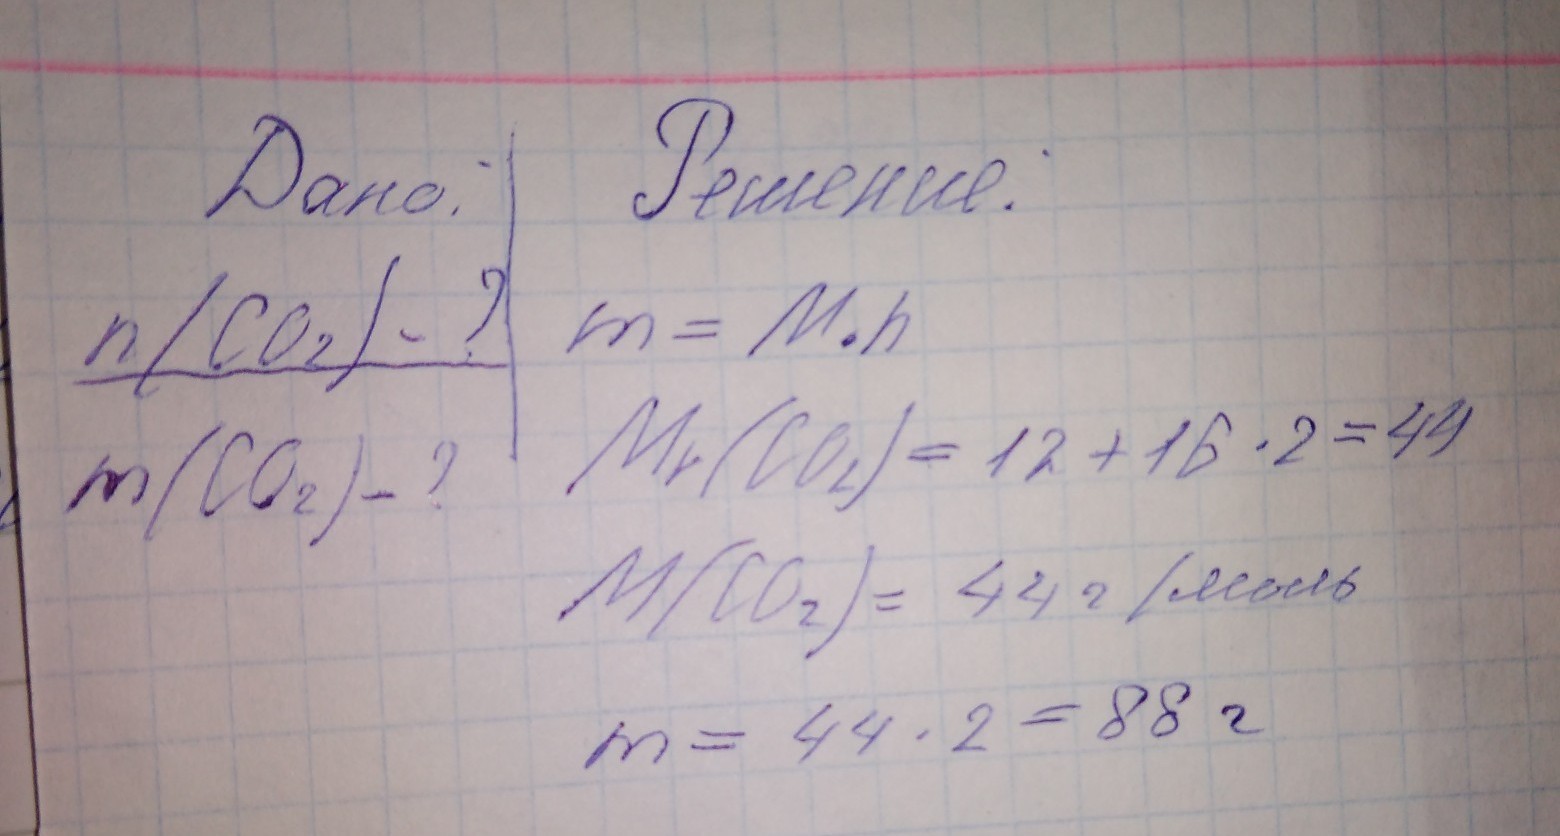 Дано:
n(CO₂) - ?
m(CO₂) - ?
Решение:
m = M·n
Mr(CO₂) = 12 + 16 · 2 = 44
M(CO₂) = 44 г/моль
m = 44 · 2 = 88 г